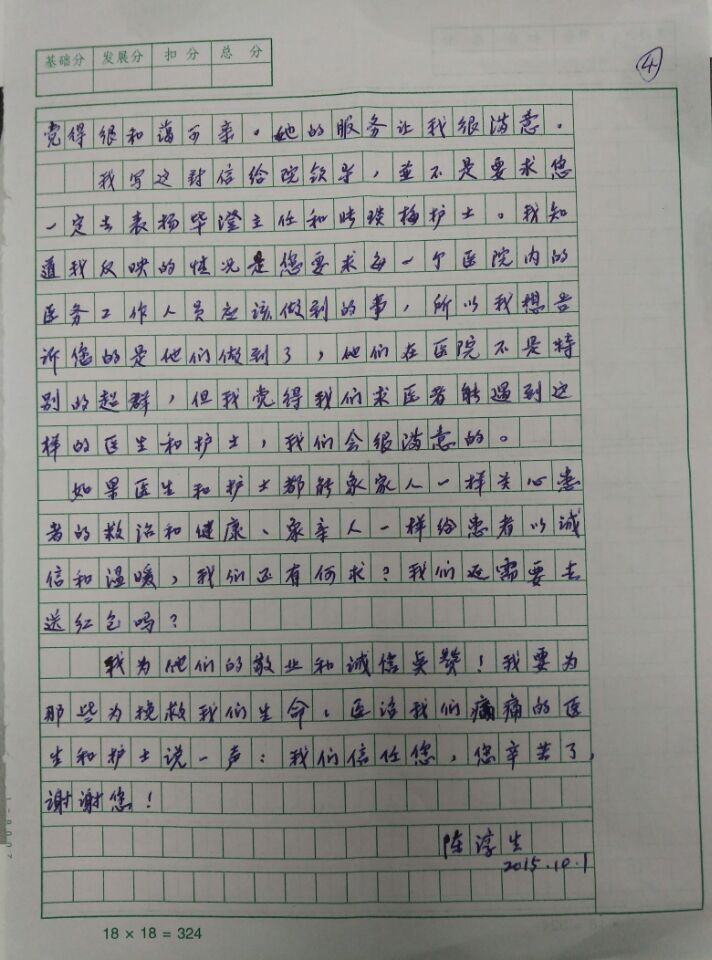 基础分 发展分 扣分 总分
④
觉得很和蔼可亲。她的服务让我很满意。
我写这封信给院领导，並不是要求您
一定去表扬毕澄主任和 梅护士。我知
道我反映的情况是您要求每一个医院内的
医务工作人员应该做到的事，所以我想告
诉您的是他们做到了，他们在医院不是特
别的超群，但我觉得我们求医者能遇到这
样的医生和护士，我们会很满意的。
如果医生和护士都能象家人一样关心患
者的救治和健康、象亲人一样给患者以诚
信和温暖，我们还有何求？我们还需要去
送红包吗？
我为他们的敬业和诚信点赞！我要为
那些为挽救我们生命、医治我们病痛的医
生和护士说一声：我们信任您，您辛苦了，
谢谢您！
陈淳生
2015.10.1
18 × 18 = 324